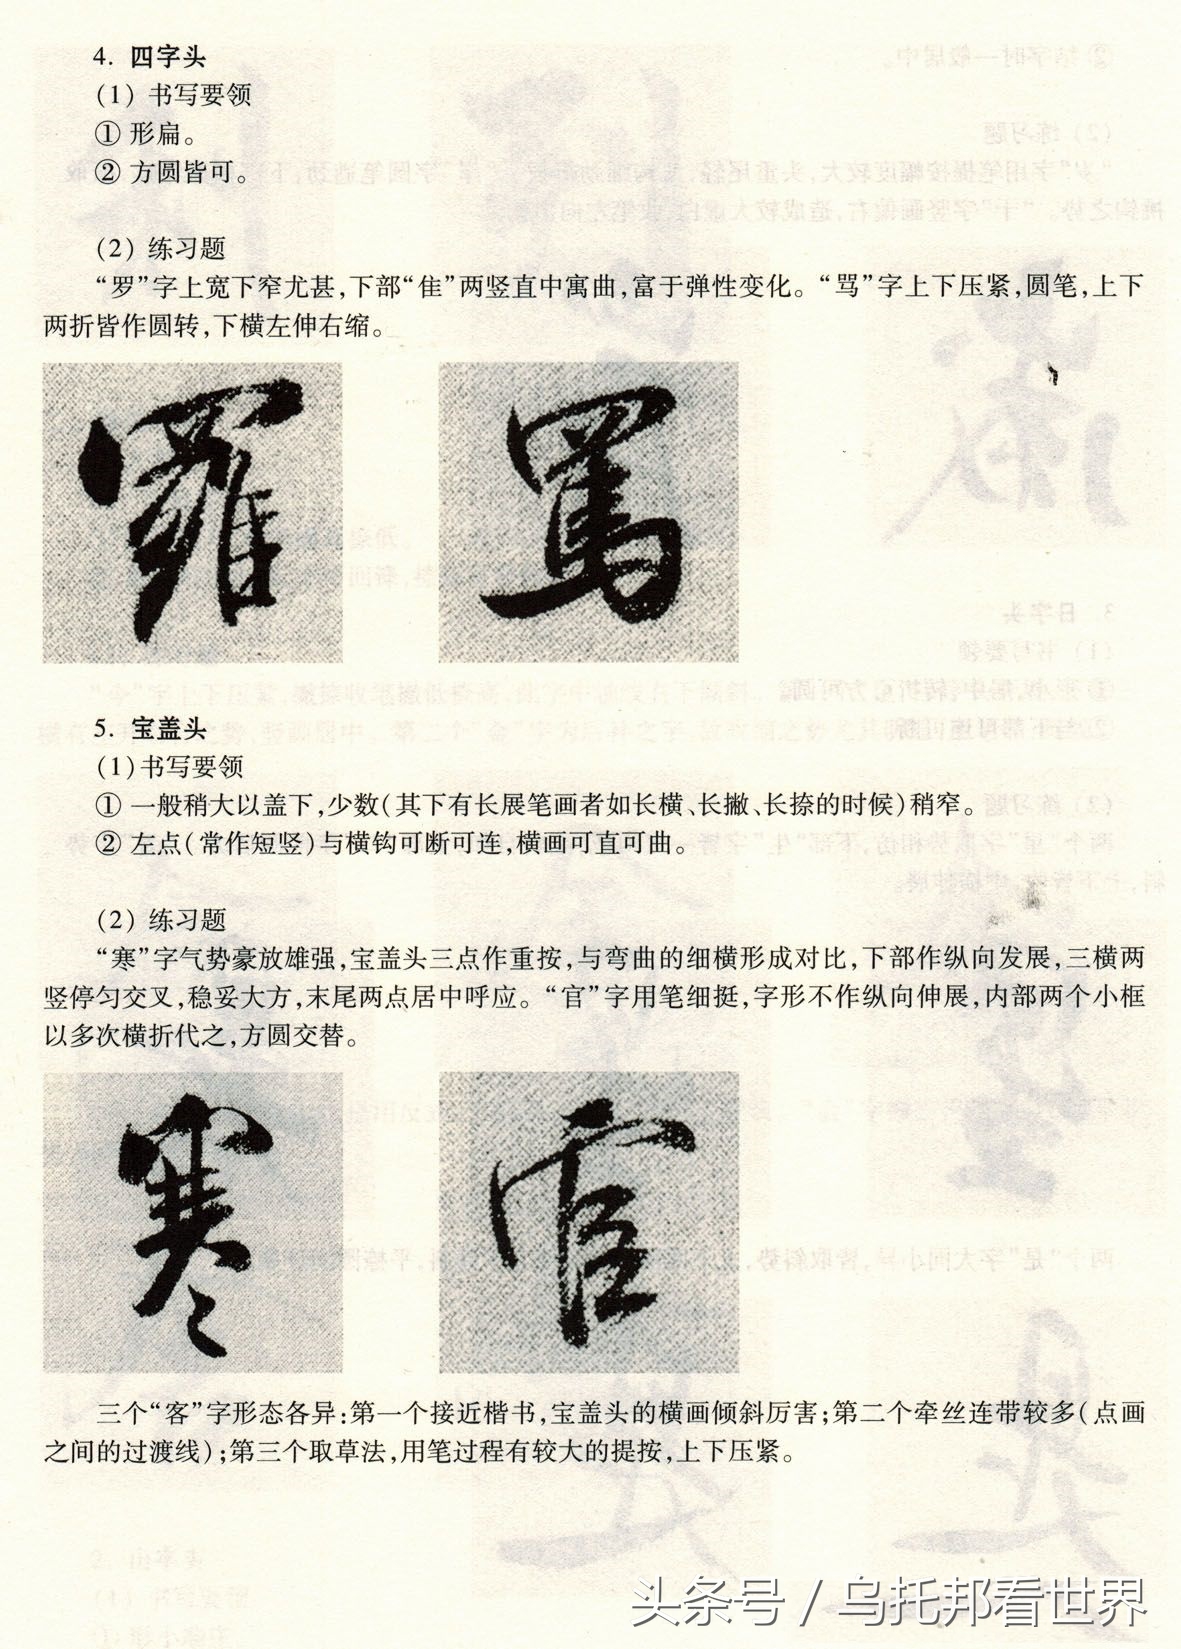 4. 四字头
(1) 书写要领
① 形扁。
② 方圆皆可。
(2) 练习题
“罗”字上宽下窄尤甚,下部“隹”两竖直中寓曲,富于弹性变化。“骂”字上下压紧,圆笔,上下
两折皆作圆转,下横左伸右缩。
羅 罵
5. 宝盖头
(1)书写要领
① 一般稍大以盖下,少数(其下有长展笔画者如长横、长撇、长捺的时候)稍窄。
② 左点(常作短竖)与横钩可断可连,横画可直可曲。
(2) 练习题
“寒”字气势豪放雄强,宝盖头三点作重按,与弯曲的细横形成对比,下部作纵向发展,三横两
竖停匀交叉,稳妥大方,末尾两点居中呼应。“官”字用笔细挺,字形不作纵向伸展,内部两个小框
以多次横折代之,方圆交替。
寒 官
三个“客”字形态各异:第一个接近楷书,宝盖头的横画倾斜厉害;第二个牵丝连带较多(点画
之间的过渡线);第三个取草法,用笔过程有较大的提按,上下压紧。
头条号 / 乌托邦看世界